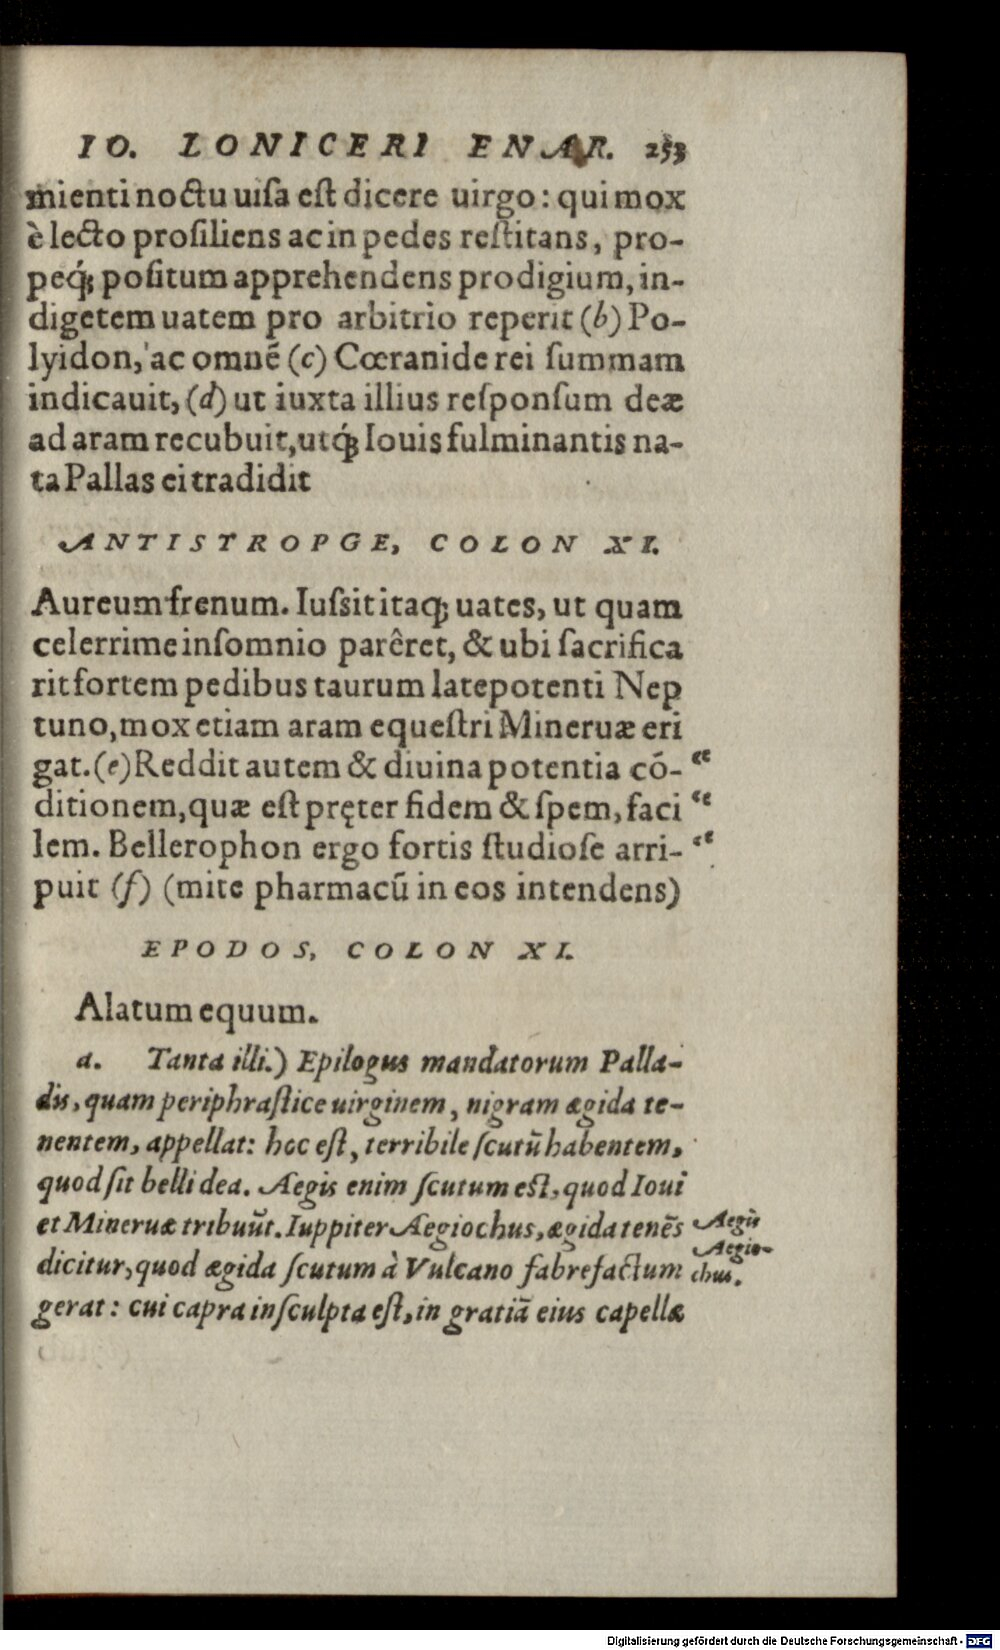 IO. LONICERI ENAR. 253
mienti noctu uiſa eſt dicere uirgo: qui mox
è lecto proſiliens ac in pedes reſtitans, pro-
peq́ꝫ poſitum apprehendens prodigium, in-
digetem uatem pro arbitrio reperit (b) Po-
lyidon, ac omnẽ (c) Cœranide rei ſummam
indicauit, (d) ut iuxta illius reſponſum deæ
ad aram recubuit, utq́ꝫ Iouis fulminantis na-
ta Pallas ei tradidit
ANTISTROPGE, COLON XI.
Aureum frenum. Iuſsit itaqꝫ uates, ut quam
celerrime inſomnio parêret, & ubi ſacrifica
rit fortem pedibus taurum latepotenti Nep
tuno, mox etiam aram equeſtri Mineruæ eri
gat. (e) Reddit autem & diuina potentia cõ- “
ditionem, quæ eſt pręter fidem & ſpem, faci “
lem. Bellerophon ergo fortis ſtudioſe arri- “
puit (f) (mite pharmacũ in eos intendens)
EPODOS, COLON XI.
Alatum equum.
a. Tanta illi.) Epilogus mandatorum Palla-
dis, quam periphraſtice uirginem, nigram ægida te-
nentem, appellat: hoc eſt, terribile ſcutũ habentem,
quod ſit belli dea. Aegis enim ſcutum eſt, quod Ioui
et Mineruæ tribuũt. Iuppiter Aegiochus, ægida tenẽs Aegis
dicitur, quod ægida ſcutum à Vulcano fabrefactum Aegio-
chus.
gerat: cui capra inſculpta eſt, in gratiã eius capellæ
Digitalisierung gefördert durch die Deutsche Forschungsgemeinschaft - DFG